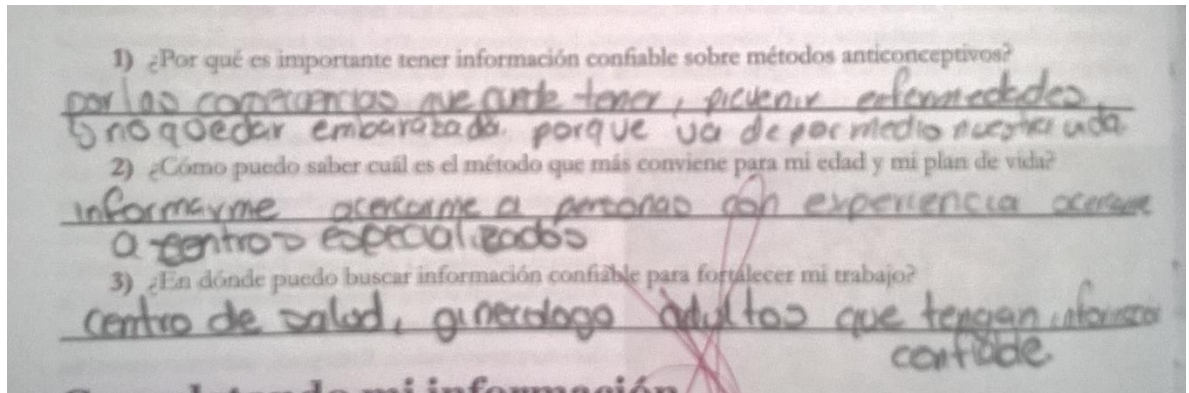 1) ¿Por qué es importante tener información confiable sobre métodos anticonceptivos?
por las consecuencias que puede tener, prevenir enfermedades,
y no quedar embarazada. porque va de por medio nuestra vida
2) ¿Cómo puedo saber cuál es el método que más conviene para mi edad y mi plan de vida?
informarme acercarme a personas con experiencia acercarme
a centros especializados
3) ¿En dónde puedo buscar información confiable para fortalecer mi trabajo?
centro de salud, ginecologo adultos que tengan informacion
confiable
mi información